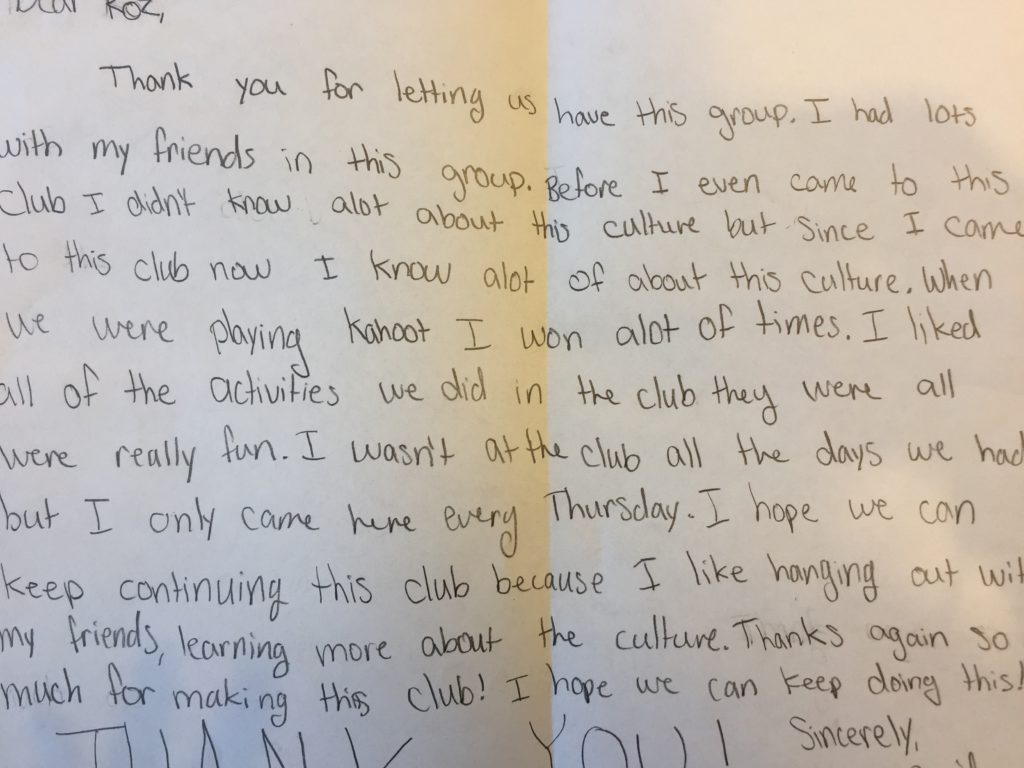 Dear Roz,
Thank you for letting us have this group. I had lots
with my friends in this group. Before I even came to this
Club I didn't know alot about this culture but since I came
to this club now I know alot of about this culture. When
we were playing Kahoot I won alot of times. I liked
all of the activities we did in the club they were all
were really fun. I wasn't at the club all the days we had
but I only came here every Thursday. I hope we can
keep continuing this club because I like hanging out wit
my friends, learning more about the culture. Thanks again so
much for making this club! I hope we can keep doing this!
THANK YOU! Sincerely,